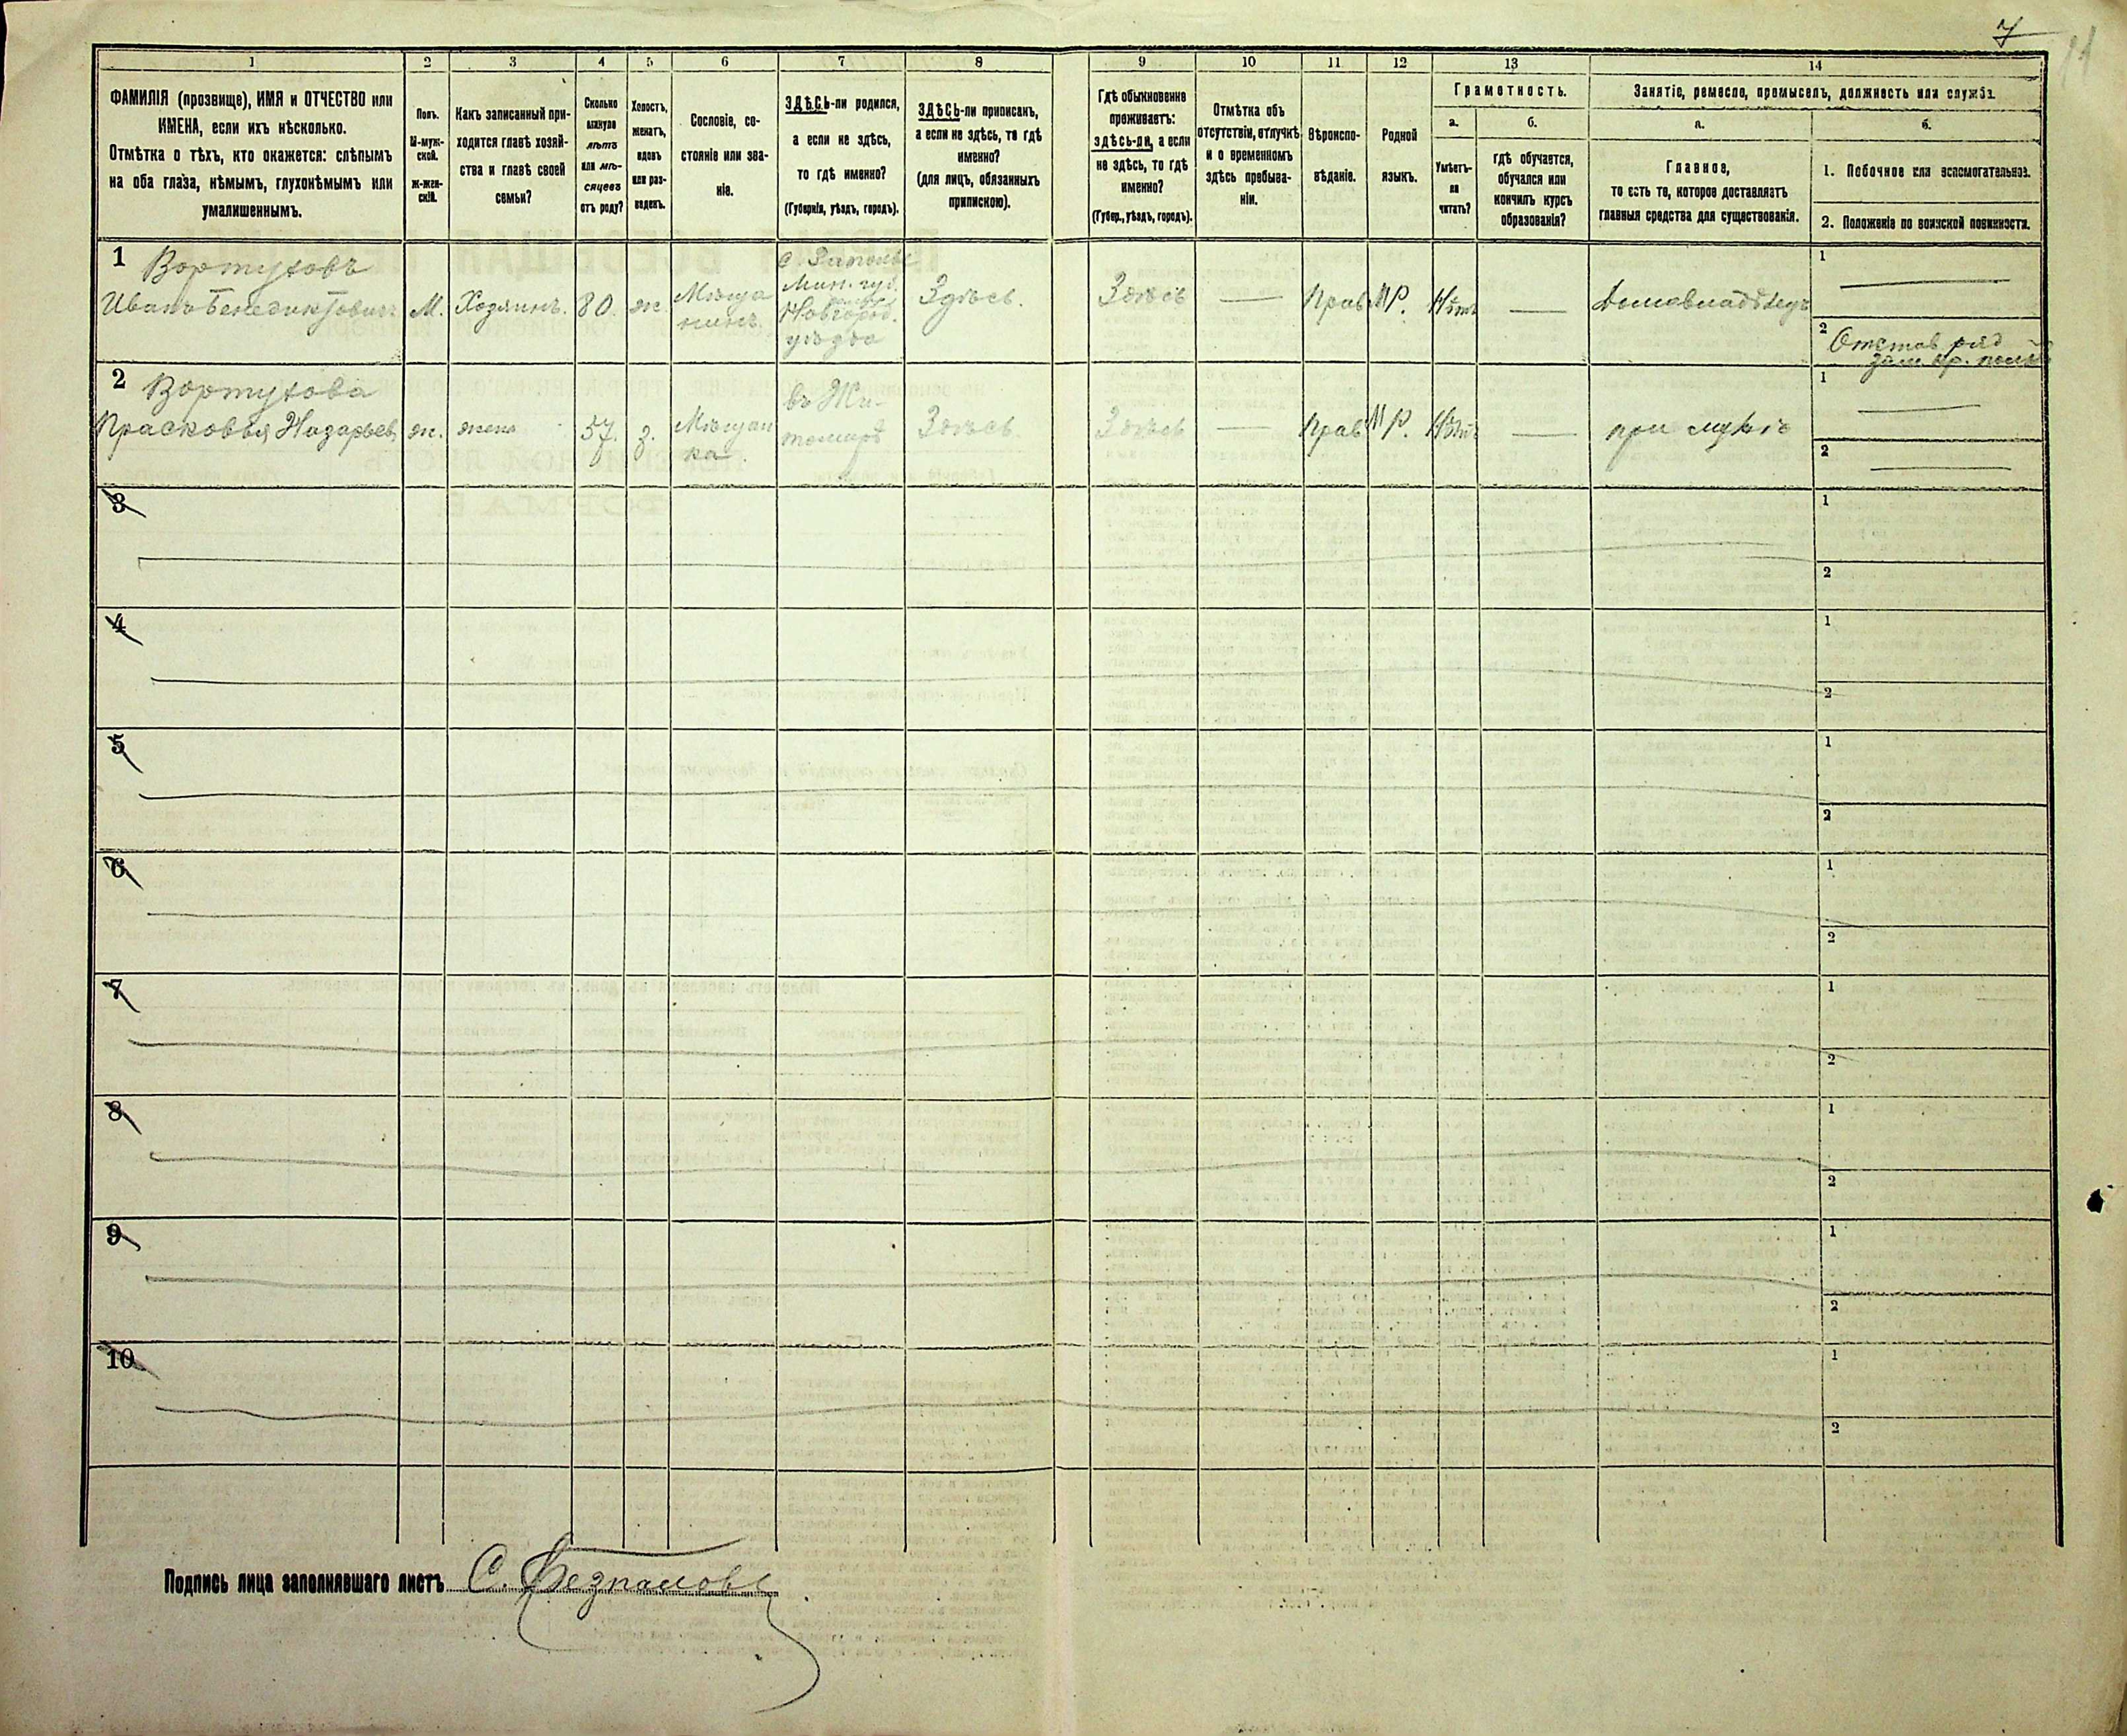 7
1
2
3
4
5
6
7
8
9
10
11
12
13
14
ФАМИЛІЯ (прозвище), ИМЯ и ОТЧЕСТВО или
ИМЕНА, если ихъ нѣсколько.
Отмѣтка о тѣхъ, кто окажется: слѣпымъ
на оба глаза, нѣмымъ, глухонѣмымъ или
умалишеннымъ.
Полъ.
М-муж-
ской.
ж-жен-
скій.
Какъ записанный при-
ходится главѣ хозяй-
ства и главѣ своей
семьи?
Сколько
минуло
лѣтъ
или мѣ-
сяцевъ
отъ роду?
Холостъ,
женатъ,
вдовъ
или раз-
веденъ.
Сословіе, со-
стояніе или зва-
ніе.
ЗДѢСЬ-ли родился,
а если не здѣсь,
то гдѣ именно?
(Губернія, уѣздъ, городъ).
ЗДѢСЬ-ли приписанъ,
а если не здѣсь, то гдѣ
именно?
(для лицъ, обязанныхъ
припискою).
Гдѣ обыкновенно
проживаетъ:
здѣсь-ли, а если
не здѣсь, то гдѣ
именно?
(Губер., уѣздъ, городъ).
Отмѣтка объ
отсутствіи, отлучкѣ
и о временномъ
здѣсь пребыва-
ніи.
Вѣроиспо-
вѣданіе.
Родной
языкъ.
Грамотность.
а.
Умѣетъ-
ли
читать?
б.
гдѣ обучается,
обучался или
кончилъ курсъ
образованія?
Занятіе, ремесло, промыселъ, должность или служба.
а.
Главное,
то есть то, которое доставляетъ
главныя средства для существованія.
б.
1. Побочное или вспомогательное.
2. Положеніе по воинской повинности.
1
Вортуховъ
Иванъ Бенедиктовичъ
М.
Хозяинъ.
80.
ж.
Мѣща
нинъ.
Мин. губ.
Новгород.
уѣзда
Здѣсь.
Здѣсь
—
Прав.
Р.
Нѣтъ
—
Домовладѣлецъ
1
—
2
Отстав ряд
2
Вортухова
Прасковья Назарьев
ж.
жена
57.
З.
Мѣщан
ка.
въ Жи-
томирѣ
Здѣсь
Здѣсь
—
Прав
Р.
Нѣтъ
—
при мужѣ
1
—
2
—
3
1
2
4
1
2
5
1
2
6
1
2
7
1
2
8
1
2
9
1
2
10
1
2
Подпись лица заполнявшаго листъ
С.